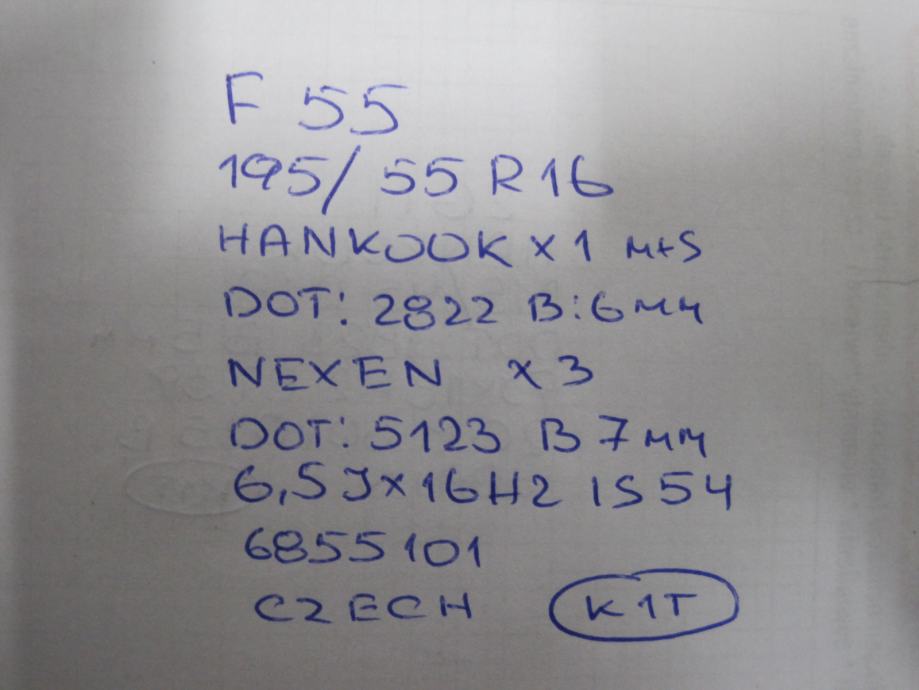 F 55
195/ 55 R16
HANKOOK x 1 M+S
DOT: 2822 B:6мм
NEXEN x 3
DOT: 5123 B 7мм
6,5J×16H2 IS54
6855101
CZECH K1T